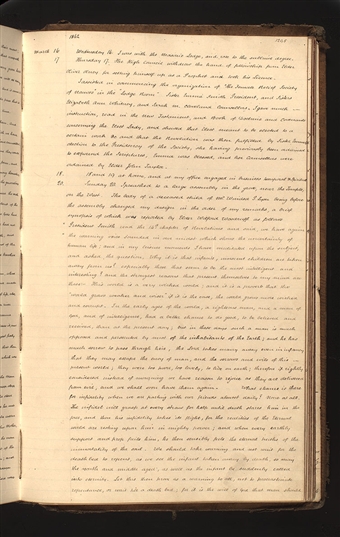 1842
March 16 Wednesday 16. I was with the Masonic Lodge, and rose to the sublime degree.
17 Thursday 17. The High Council withdrew the hand of fellowship from Elder
Oliver Olney for setting himself up as a Prophet and took his license.
I assisted in commencing the organization of "The Female Relief Society
of Nauvoo" in the "Lodge Room". Sister Emma Smith, President, and Sister
Elizabeth Ann Whitney, and Sarah M. Cleveland Counsellors. I gave much
instruction, read in the New Testament, and Book of Doctrine and Covenants
concerning the Elect Lady, and shewed that Elect meant to be elected to a
certain work &c and that the Revelation was then fulfilled by Sister Emma's
election to the Presidency of the Society, she having previously been ordained
to expound the Scriptures. Emma was blessed, and her Counsellors were
ordained by Elder John Taylor.
18. Friday at home, and at my office engaged in business
20. Sunday 20. I preached to a large assembly in the grove, near the Temple,
on the West. The body of a deceased child of Mr. Windsor P. Lyon being before
the assembly changed my design in the order of my remarks, a brief
synopsis of which was reported by Elder Wilford Woodruff as follows
"President Smith read the 14th chapter of Revelations and said, we have again
the warning voice sounded in our midst which shews the uncertainty of
human life; and in my leisure moments I have meditated upon the subject,
and asked the question, Why is it that infants, innocent children are taken
away from us? especially those that seem to be the most intelligent and
interesting? and the strongest reasons that present themselves to my mind are
these. This world is a very wicked world; and it is a proverb that the
"world grows weaker and wiser" if it is the case, the world grows more wicked
and corrupt. In the early ages of the world, a righteous man, and a man of
God, and of intelligence, had a better chance to do good, to be believed and
received, than at the present day; but in these days such a man is much
opposed and persecuted by most of the inhabitants of the Earth, and he has
much sorrow to pass through here; the Lord takes many away even in infancy
that they may escape the envy of man, and the sorrows and evils of this
present world; they were too pure, too lovely, to live on earth; therefore if rightly
considered instead of mourning we have reason to rejoice as they are delivered
from evil, and we shall soon have them again. What chance is there
for infidelity when we are parting with our friends almost daily? None at all.
The infidel will grasp at every straw for help until death stares him in the
face, and then his infidelity takes its flight, for the realities of the eternal
world are resting upon him in mighty power; and when every earthly
support and prop fails him, he then sensibly feels the eternal truths of the
immortality of the soul. We should take warning and not wait for the
death bed to repent, as we see the infant taken away by death, so may
the youth and middle aged, as well as the infant be suddenly called
into eternity. Let this then prove as a warning to all, not to procrastinate
repentance, or wait till a death bed, for it is the will of God that man should